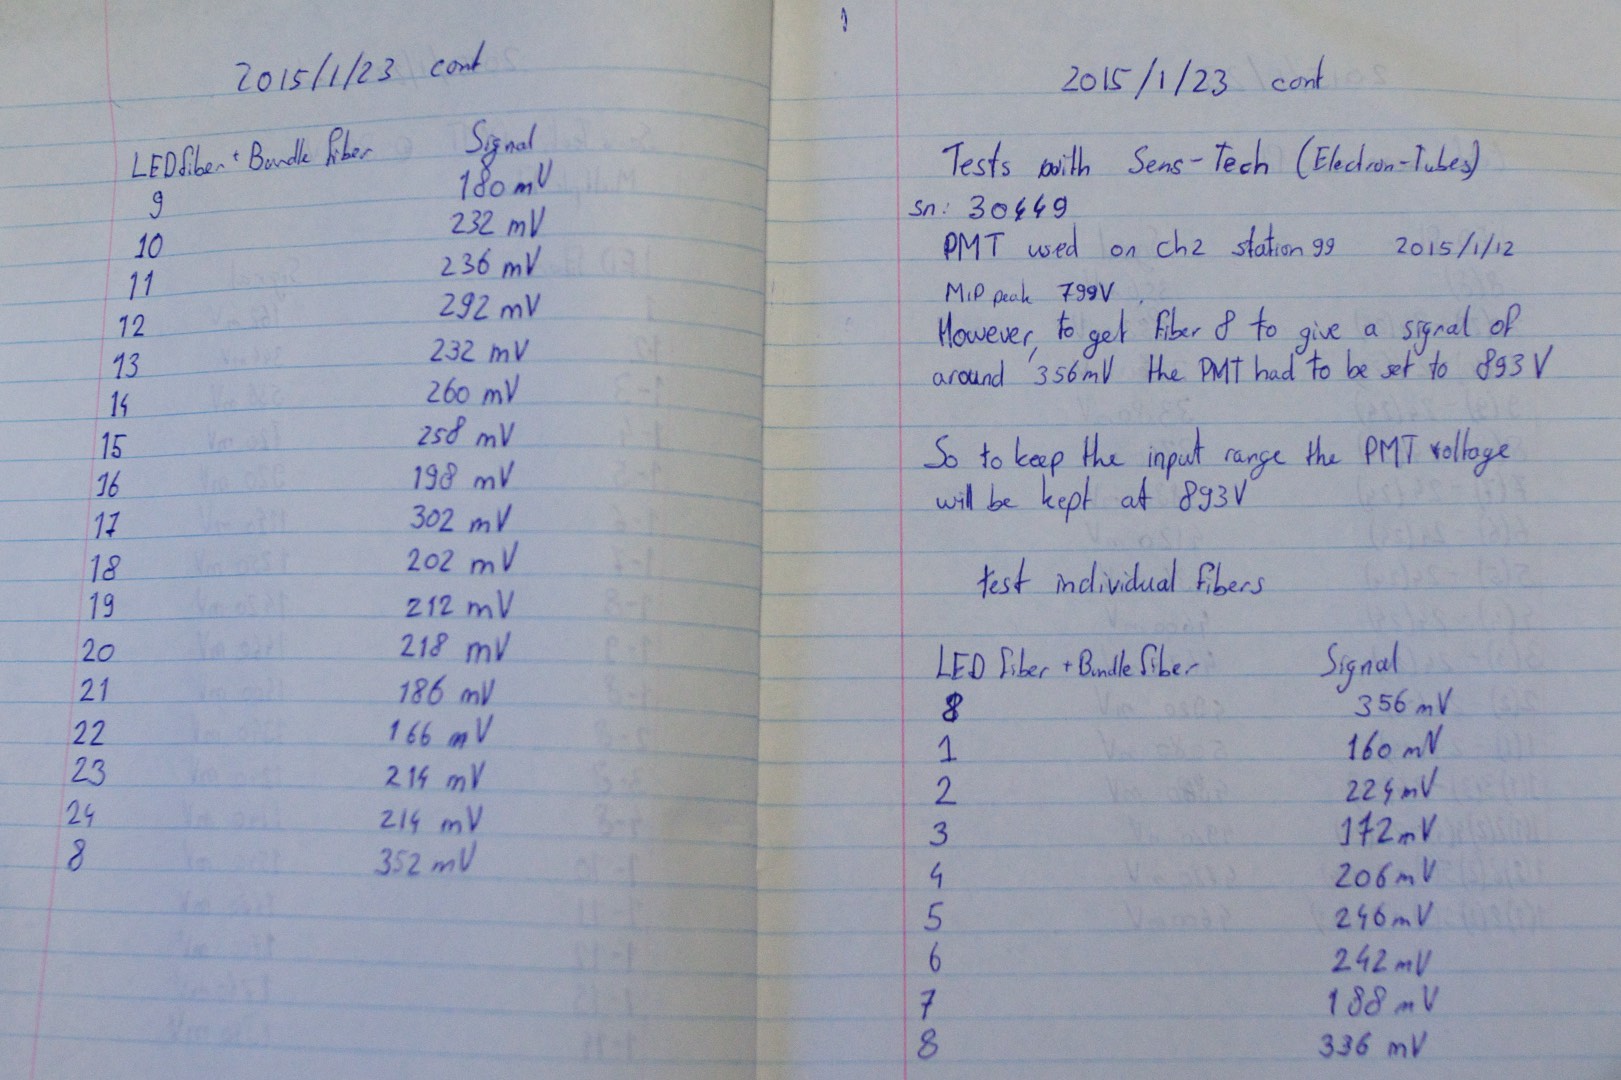 2015/1/23 cont
LED fiber + Bundle fiber Signal
9 180 mV
10 232 mV
11 236 mV
12 292 mV
13 232 mV
14 260 mV
15 258 mV
16 198 mV
17 302 mV
18 202 mV
19 212 mV
20 218 mV
21 186 mV
22 166 mV
23 214 mV
24 214 mV
8 352 mV
2015/1/23 cont
Tests with Sens-Tech (Electron-Tubes)
sn: 30449
PMT used on ch2 station 99 2015/1/12
MIP peak 799V.
However, to get fiber 8 to give a signal of
around 356mV the PMT had to be set to 893V
So to keep the input range the PMT voltage
will be kept at 893V
test individual fibers
LED fiber + Bundle fiber Signal
8 356 mV
1 160 mV
2 224 mV
3 172 mV
4 206 mV
5 246 mV
6 242 mV
7 188 mV
8 336 mV